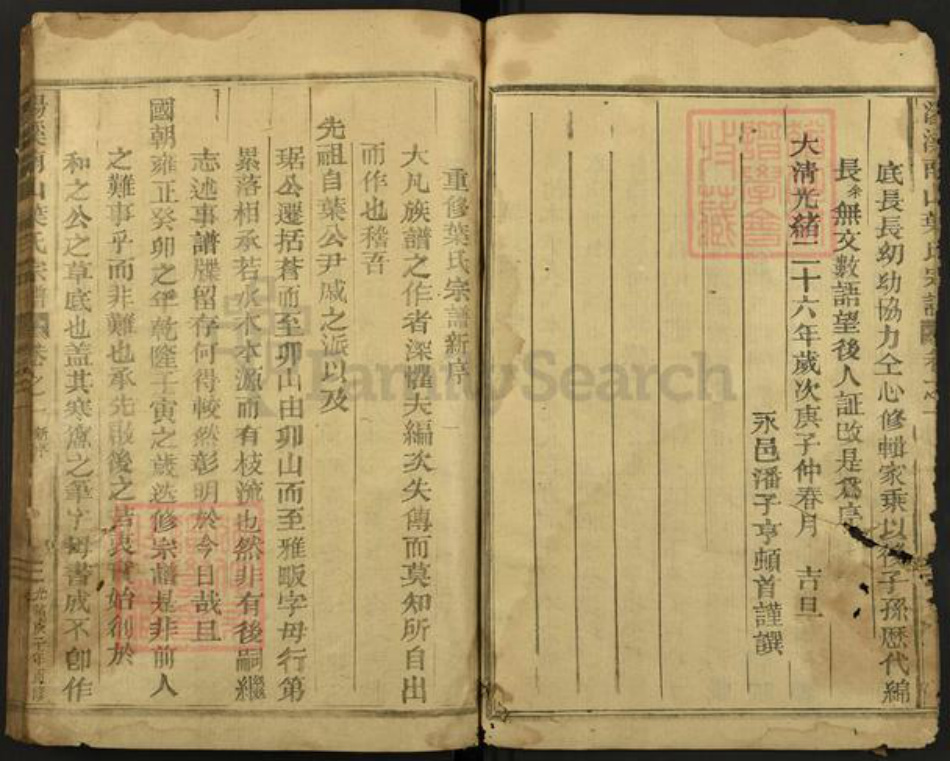 底長長幼幼協力仝心修輯家乘以後子孫歷代綿
長余無交數語望後人証改是爲序
大清光緒二十六年歲次庚子仲春月 吉旦
永邑潘子亨頓首謹譔
重修葉氏宗譜新序
大凡族譜之作者深懼夫編次失傳而莫知所自出
而作也稽吾
先祖自葉公尹戚之派以及
琚公遷括蒼而至卯山由卯山而至雅畈字母行第
累落相承若水木本源而有枝流也然非有後嗣繼
志述事譜牒留存何得較然彰明於今日哉且
國朝雍正癸卯之年乾隆壬寅之歲迭修宗譜是非前人
之難事乎而非難也承先啟後之吉衷實始創於
和之公之草底也盖其寒窻之筆字母書成不卽作
南山葉氏宗譜 卷之一 新序
FamilySearch